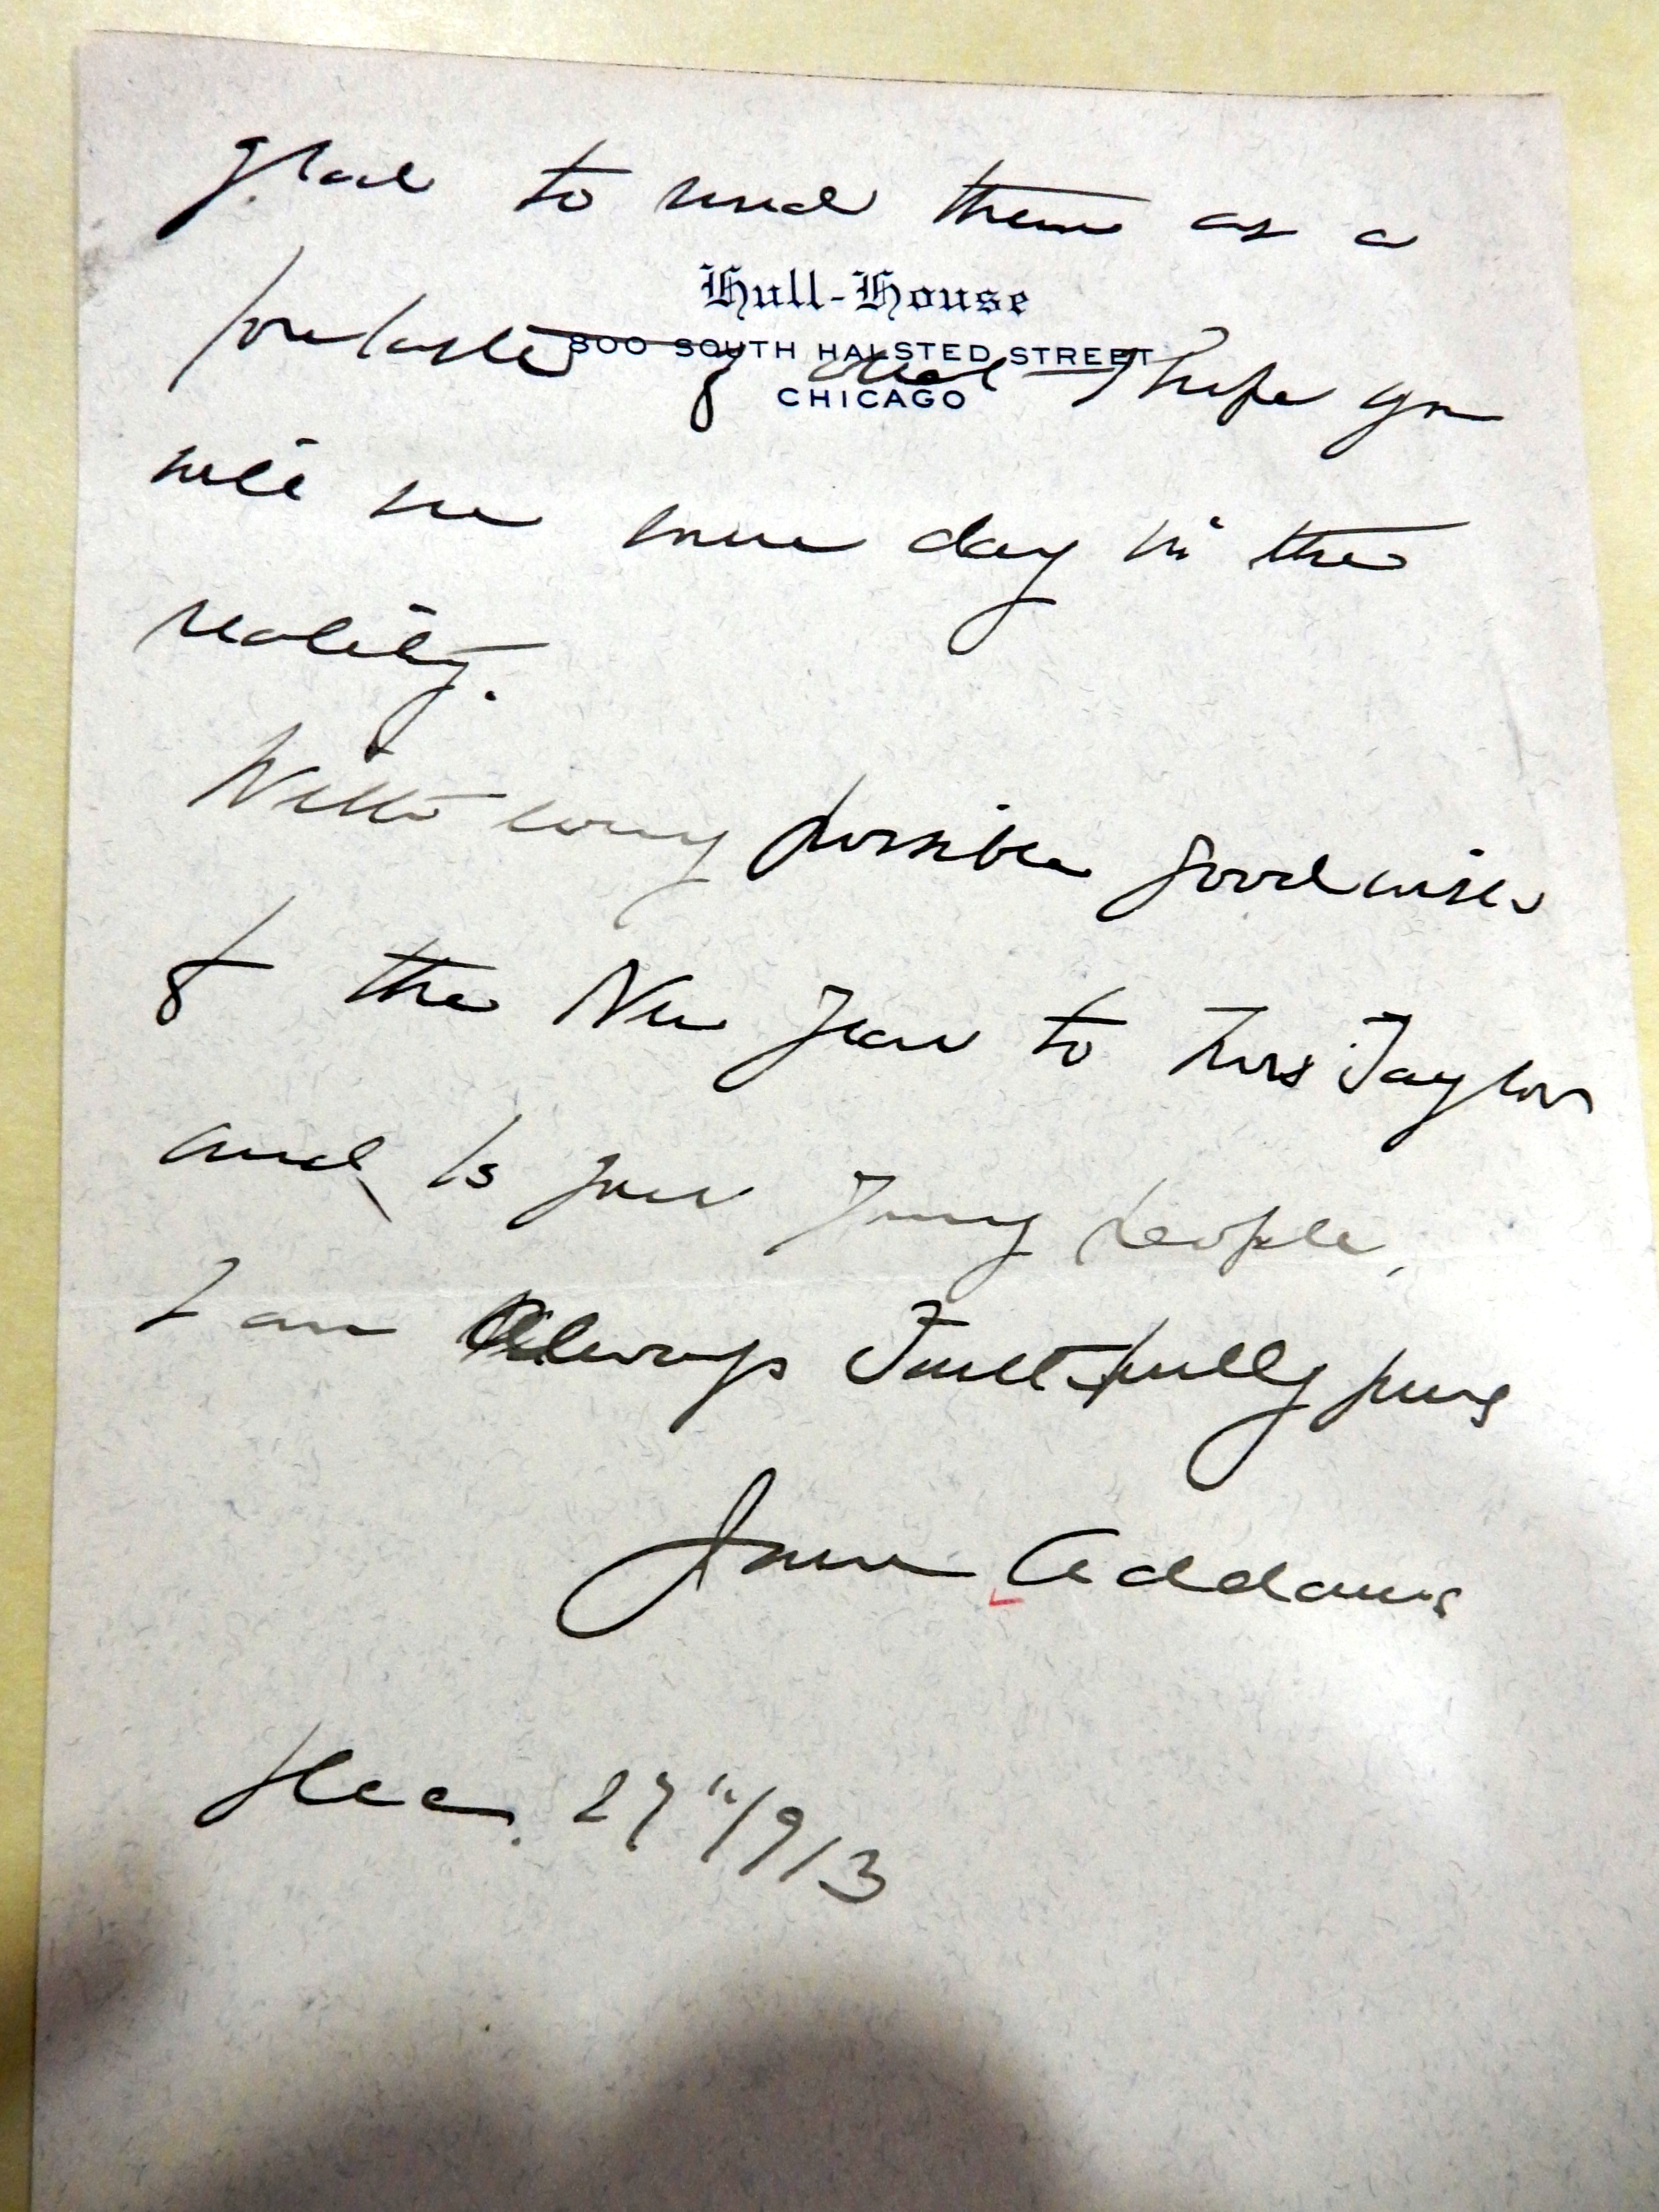 glad to send them as a
Hull-House
800 SOUTH HALSTED STREET
CHICAGO
foretaste of what I hope you
will see some day in the
reality.
With every possible good wish
of the New Year to Mrs Taylor
and to your young people,
I am always faithfully yours
Jane Addams
Dec. 27" 1913